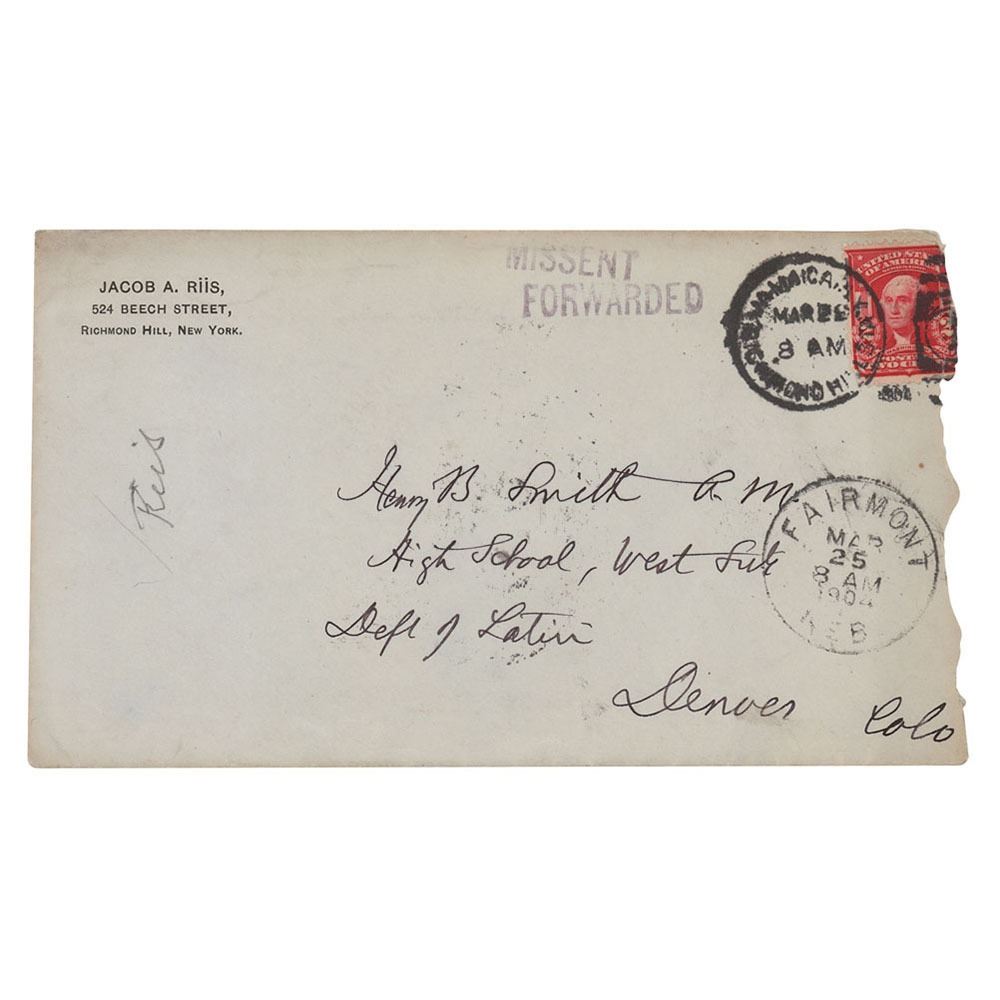 JACOB A. RIIS,
524 BEECH STREET,
RICHMOND HILL, NEW YORK.
MISSENT
FORWARDED
JAMAICA
MAR
8 AM
UNITED STATES
OF AMERICA
1904
Reis
Henry B. Smith A. M.
High School, West Side
Dept of Latin
Denver Colo
FAIRMONT
MAR
25
8 AM
1904
NEB